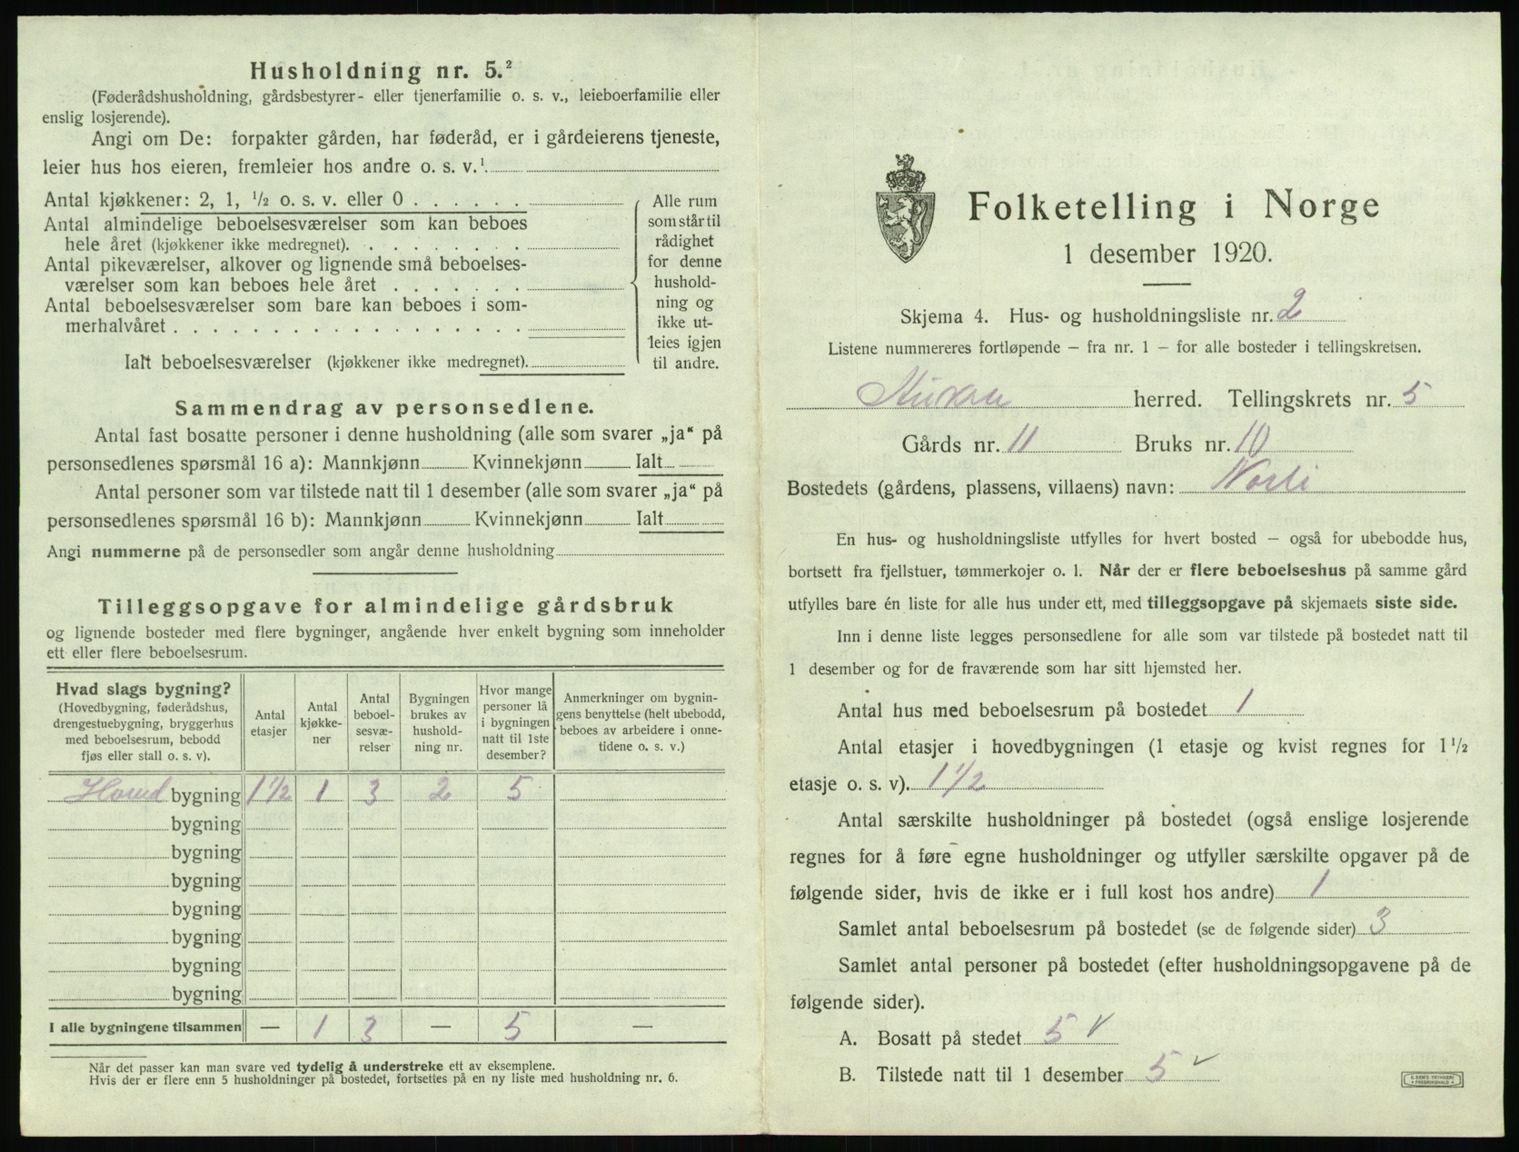 Husholdning nr. 5.²
(Føderådshusholdning, gårdsbestyrer- eller tjenerfamilie o. s. v., leieboerfamilie eller
enslig losjerende).
Angi om De: forpakter gården, har føderåd, er i gårdeierens tjeneste,
leier hus hos eieren, fremleier hos andre o. s. v.¹
Antal kjøkkener: 2, 1, ½ o. s. v. eller 0
Antal almindelige beboelsesværelser som kan beboes
hele året (kjøkkener ikke medregnet).
Antal pikeværelser, alkover og lignende små beboelses-
værelser som kan beboes hele året
Antal beboelsesværelser som bare kan beboes i som-
merhalvåret
Ialt beboelsesværelser (kjøkkener ikke medregnet).
Alle rum
som står til
rådighet
for denne
hushold-
ning og
ikke ut-
leies igjen
til andre.
Sammendrag av personsedlene.
Antal fast bosatte personer i denne husholdning (alle som svarer „ja“ på
personsedlenes spørsmål 16 a): Mannkjønn Kvinnekjønn Ialt
Antal personer som var tilstede natt til 1 desember (alle som svarer „ja“ på
personsedlenes spørsmål 16 b): Mannkjønn Kvinnekjønn Ialt
Angi nummerne på de personsedler som angår denne husholdning
Tilleggsopgave for almindelige gårdsbruk
og lignende bosteder med flere bygninger, angående hver enkelt bygning som inneholder
ett eller flere beboelsesrum.
Hvad slags bygning?
(Hovedbygning, føderådshus,
drengestuebygning, bryggerhus
med beboelsesrum, bebodd
fjøs eller stall o. s. v).
Antal
etasjer
Antal
kjøkke-
ner
Antal
beboel-
sesvæ-
relser
Bygningen
brukes av
hushold-
ning nr.
Hvor mange
personer lå
i bygningen
natt til 1ste
desember?
Anmerkninger om bygnin-
gens benyttelse (helt ubebodd,
beboes av arbeidere i onne-
tidene o. s. v.)
Hovedbygning 1½ 1 3 2 5
bygning
bygning
bygning
bygning
bygning
bygning
bygning
I alle bygningene tilsammen — 1 3 — 5 —
Når det passer kan man svare ved tydelig å understreke ett av eksemplene.
Hvis der er flere enn 5 husholdninger på bostedet, fortsettes på en ny liste med husholdning nr. 6.
Folketelling i Norge
1 desember 1920.
Skjema 4. Hus- og husholdningsliste nr. 2
Listene nummereres fortløpende — fra nr. 1 — for alle bosteder i tellingskretsen.
herred. Tellingskrets nr. 5
Gårds nr. 11 Bruks nr. 10
Bostedets (gårdens, plassens, villaens) navn: Norli
En hus- og husholdningsliste utfylles for hvert bosted — også for ubebodde hus,
bortsett fra fjellstuer, tømmerkojer o. l. Når der er flere beboelseshus på samme gård
utfylles bare én liste for alle hus under ett, med tilleggsopgave på skjemaets siste side.
Inn i denne liste legges personsedlene for alle som var tilstede på bostedet natt til
1 desember og for de fraværende som har sitt hjemsted her.
Antal hus med beboelsesrum på bostedet 1
Antal etasjer i hovedbygningen (1 etasje og kvist regnes for 1½
etasje o. s. v). 1½
Antal særskilte husholdninger på bostedet (også enslige losjerende
regnes for å føre egne husholdninger og utfyller særskilte opgaver på de
følgende sider, hvis de ikke er i full kost hos andre) 1
Samlet antal beboelsesrum på bostedet (se de følgende sider) 3
Samlet antal personer på bostedet (efter husholdningsopgavene på de
følgende sider).
A. Bosatt på stedet 5 ✓
B. Tilstede natt til 1 desember 5 ✓